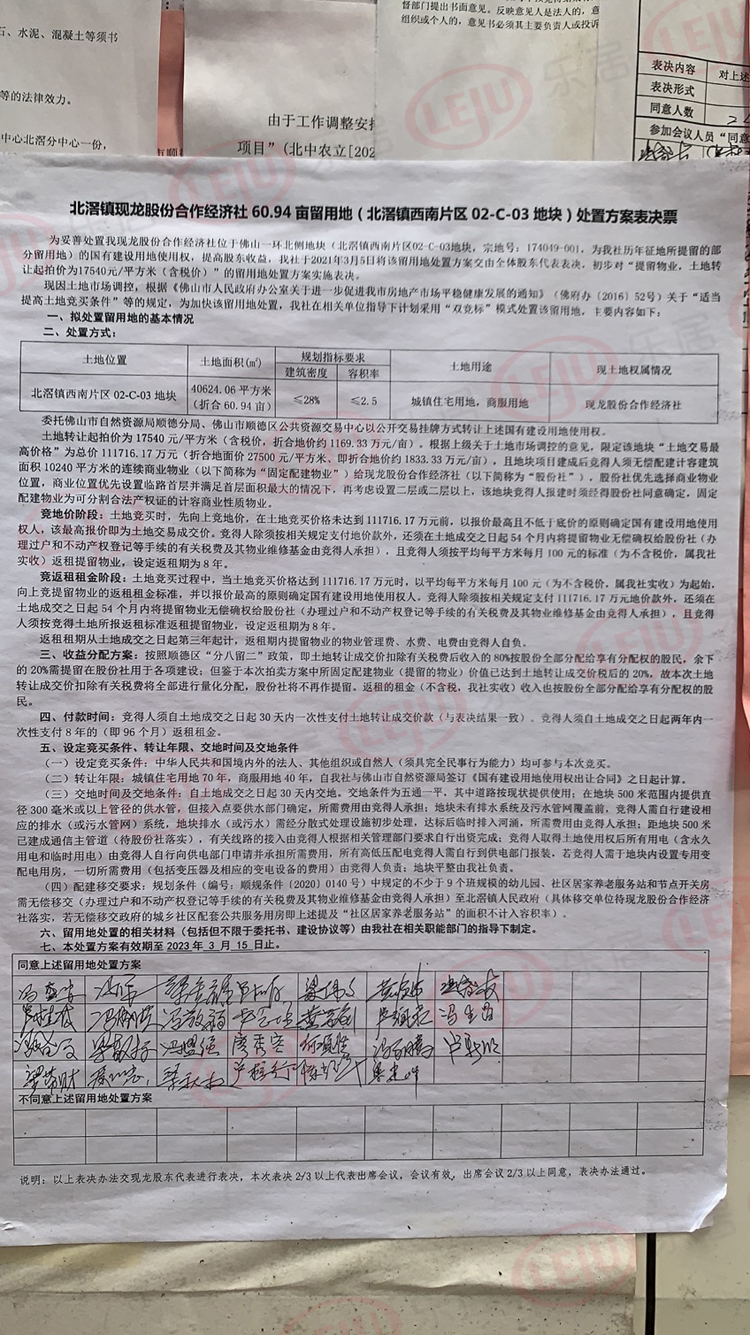 石、水泥、混凝土等须书
等的法律效力。
中心北滘分中心一份,
由于工作调整安排
项目”(北中农立[202
督部门提出书面意见。反映意见人是法人的,意
组织或个人的,意见书必须其主要负责人或投诉
表决内容 对上述
表决形式
同意人数
参加会议人员“同意
北滘镇现龙股份合作经济社 60.94 亩留用地(北滘镇西南片区 02-C-03 地块)处置方案表决票
为妥善处置我现龙股份合作经济社位于佛山一环北侧地块(北滘镇西南片区02-C-03地块,宗地号:174049-001,为我社历年征地所提留的部
分留用地)的国有建设用地使用权,提高股东收益,我社于2021年3月5日将该留用地处置方案交由全体股东代表表决,初步对“提留物业,土地转
让起拍价为17540元/平方米(含税价)”的留用地处置方案实施表决。
现因土地市场调控,根据《佛山市人民政府办公室关于进一步促进我市房地产市场平稳健康发展的通知》(佛府办〔2016〕52号)关于“适当
提高土地竞买条件”等的规定,为加快该留用地处置,我社在相关单位指导下计划采用“双竞标”模式处置该留用地,主要内容如下:
一、拟处置留用地的基本情况
二、处置方式:
土地位置 土地面积(㎡) 规划指标要求 土地用途 现土地权属情况
建筑密度 容积率
北滘镇西南片区 02-C-03 地块 40624.06 平方米 ≤28% ≤2.5 城镇住宅用地,商服用地 现龙股份合作经济社
(折合 60.94 亩)
委托佛山市自然资源局顺德分局、佛山市顺德区公共资源交易中心以公开交易挂牌方式转让上述国有建设用地使用权。
土地转让起拍价为 17540 元/平方米(含税价,折合地价约 1169.33 万元/亩)。根据上级关于土地市场调控的意见,限定该地块“土地交易最
高价格”为总价 111716.17 万元(折合地面价 27500 元/平方米、即折合地价约 1833.33 万元/亩),且地块项目建成后竞得人须无偿配建计容建筑
面积 10240 平方米的连续商业物业(以下简称为“固定配建物业”)给现龙股份合作经济社(以下简称“股份社”),股份社优先选择商业物业
位置,商业位置优先设置临路首层并满足首层面积最大的情况下,再考虑设置二层或二层以上,该地块竞得人报建时须经得股份社同意确定,固定
配建物业为可分割合法产权证的计容商业性质物业。
竞地价阶段:土地竞买时,先向上竞地价,在土地竞买价格未达到 111716.17 万元前,以报价最高且不低于底价的原则确定国有建设用地使用
权人,该最高报价即为土地交易成交价。竞得人除须按相关规定支付地价款外,还须在土地成交之日起 54 个月内将提留物业无偿确权给股份社(办
理过户和不动产权登记等手续的有关税费及其物业维修基金由竞得人承担),且竞得人须按平均每平方米每月 100 元的标准(为不含税价,属我社
实收)返租提留物业,设定返租期为 8 年。
竞返租租金阶段:土地竞买过程中,当土地竞买价格达到 111716.17 万元时,以平均每平方米每月 100 元(为不含税价,属我社实收)为起始,
向上竞提留物业的返租租金标准,并以报价最高的原则确定国有建设用地使用权人。竞得人除须按相关规定支付 111716.17 万元地价款外,还须在
土地成交之日起 54 个月内将提留物业无偿确权给股份社(办理过户和不动产权登记等手续的有关税费及其物业维修基金由竞得人承担),且竞得
人须按竞得土地所报返租标准返租提留物业,设定返租期为 8 年。
返租租期从土地成交之日起第三年起计,返租期内提留物业的物业管理费、水费、电费由竞得人自负。
三、收益分配方案:按照顺德区“分八留二”政策,即土地转让成交价扣除有关税费后收入的 80%按股份全部分配给享有分配权的股民,余下
的 20%需提留在股份社用于各项建设;但鉴于本次拍卖方案中所固定配建物业(提留的物业)价值已达到土地转让成交价税后的 20%,故本次土地
转让成交价扣除有关税费将全部进行量化分配,股份社将不再作提留。返租的租金(不含税,我社实收)收入也按股份全部分配给享有分配权的股
民。
四、付款时间:竞得人须自土地成交之日起 30 天内一次性支付土地转让成交价款(与表决结果一致)。竞得人须自土地成交之日起两年内一
次性支付 8 年的(即 96 个月)返租租金。
五、设定竞买条件、转让年限、交地时间及交地条件
(一)设定竞买条件:中华人民共和国境内外的法人、其他组织或自然人(须具完全民事行为能力)均可参与本次竞买。
(二)转让年限:城镇住宅用地 70 年,商服用地 40 年,自我社与佛山市自然资源局签订《国有建设用地使用权出让合同》之日起计算。
(三)交地时间及交地条件:自土地成交之日起 30 天内交地。交地条件为五通一平,其中道路按现状提供使用;在地块 500 米范围内提供直
径 300 毫米或以上管径的供水管,但接入点要供水部门确定,所需费用由竞得人承担;地块未有排水系统及污水管网覆盖前,竞得人需自行建设相
应的排水(或污水管网)系统,地块排水(或污水)需经分散式处理设施初步处理,达标后临时排入河涌,所需费用由竞得人承担;距地块 500 米
已建成通信主管道(待股份社落实),有关线路的接入由竞得人根据相关管理部门要求自行出资完成;竞得人取得土地使用权后所有用电(含永久
用电和临时用电)由竞得人自行向供电部门申请并承担所需费用,所有高低压配电竞得人需自行到供电部门报装,若竞得人需于地块内设置专用变
配电用房,一切所需费用(包括变压器及相应的变电设备的费用)由竞得人负责;地块平整由我社负责。
(四)配建移交要求:规划条件(编号:顺规条件〔2020〕0140 号)中规定的不少于 9 个班规模的幼儿园、社区居家养老服务站和节点开关房
需无偿移交(办理过户和不动产权登记等手续的有关税费及其物业维修基金由竞得人承担)至北滘镇人民政府(具体移交单位待现龙股份合作经济
社落实,若无偿移交政府的城乡社区配套公共服务用房即上述提及“社区居家养老服务站”的面积不计入容积率)。
六、留用地处置的相关材料(包括但不限于委托书、建设协议等)由我社在相关职能部门的指导下制定。
七、本处置方案有效期至 2023 年 3 月 15 日止。
同意上述留用地处置方案
不同意上述留用地处置方案
说明:以上表决办法交现龙股东代表进行表决,本次表决 2/3 以上代表出席会议,会议有效,出席会议 2/3 以上同意,表决办法通过。
LEJU 乐居